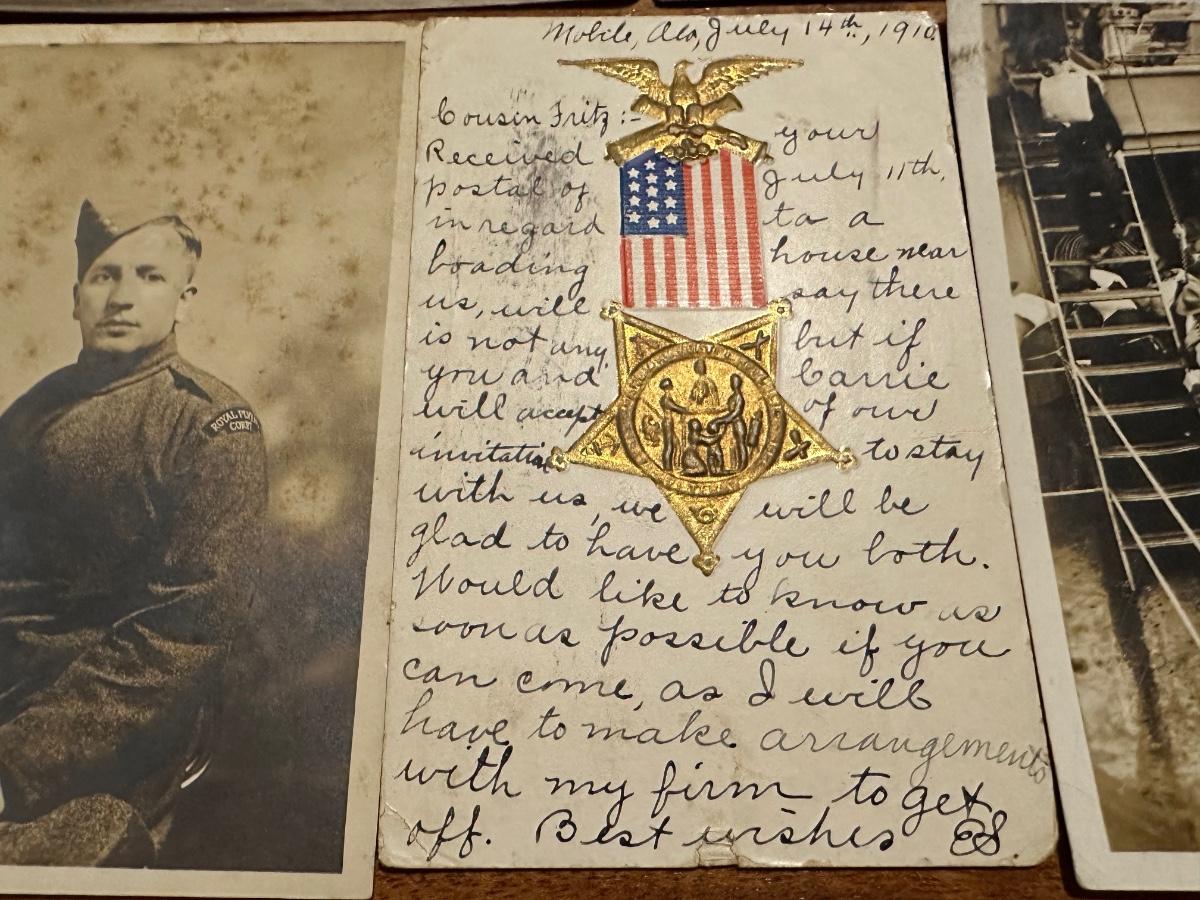 Mobile, Ala, July 14th, 1910.
Cousin Fritz:- your
Received
postal of July 11th,
in regard to a
boading house near
us, will say there
is not any but if
you and Carrie
will accept of our
invitation to stay
with us, we will be
glad to have you both.
Would like to know as
soon as possible if you
can come, as I will
have to make arrangements
with my firm to get
off. Best wishes ES
ROYAL FLYING
CORPS